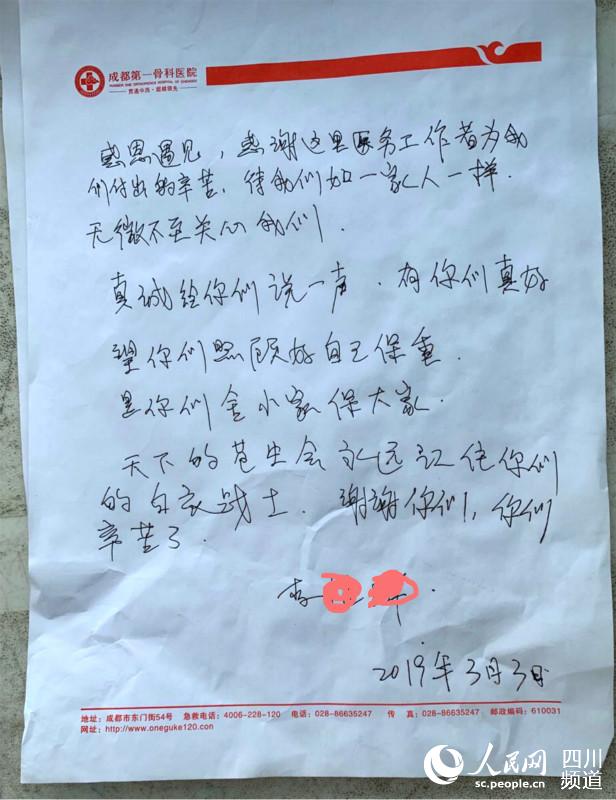 成都第一骨科医院
NUMBER ONE ORTHOPAEDICS HOSPITAL OF CHENGDU
贯通中西·超越领先
感恩遇见，感谢这里医务工作者为我
们付出的辛苦，待我们如一家人一样．
无微不至关心我们．
真诚给你们说一声．有你们真好
望你们照顾好自己保重．
是你们舍小家保大家．
天下的苍生会永远记住你们
的白衣战士．谢谢你们，你们
辛苦了．
李
2019年3月3日
地址：成都市东门街54号 急救电话：4006-228-120 电话：028-86635247 传 真：028-86635247 邮政编码：610031
网址：http://www.oneguke120.con
人民网 四川频道
sc.people.cn